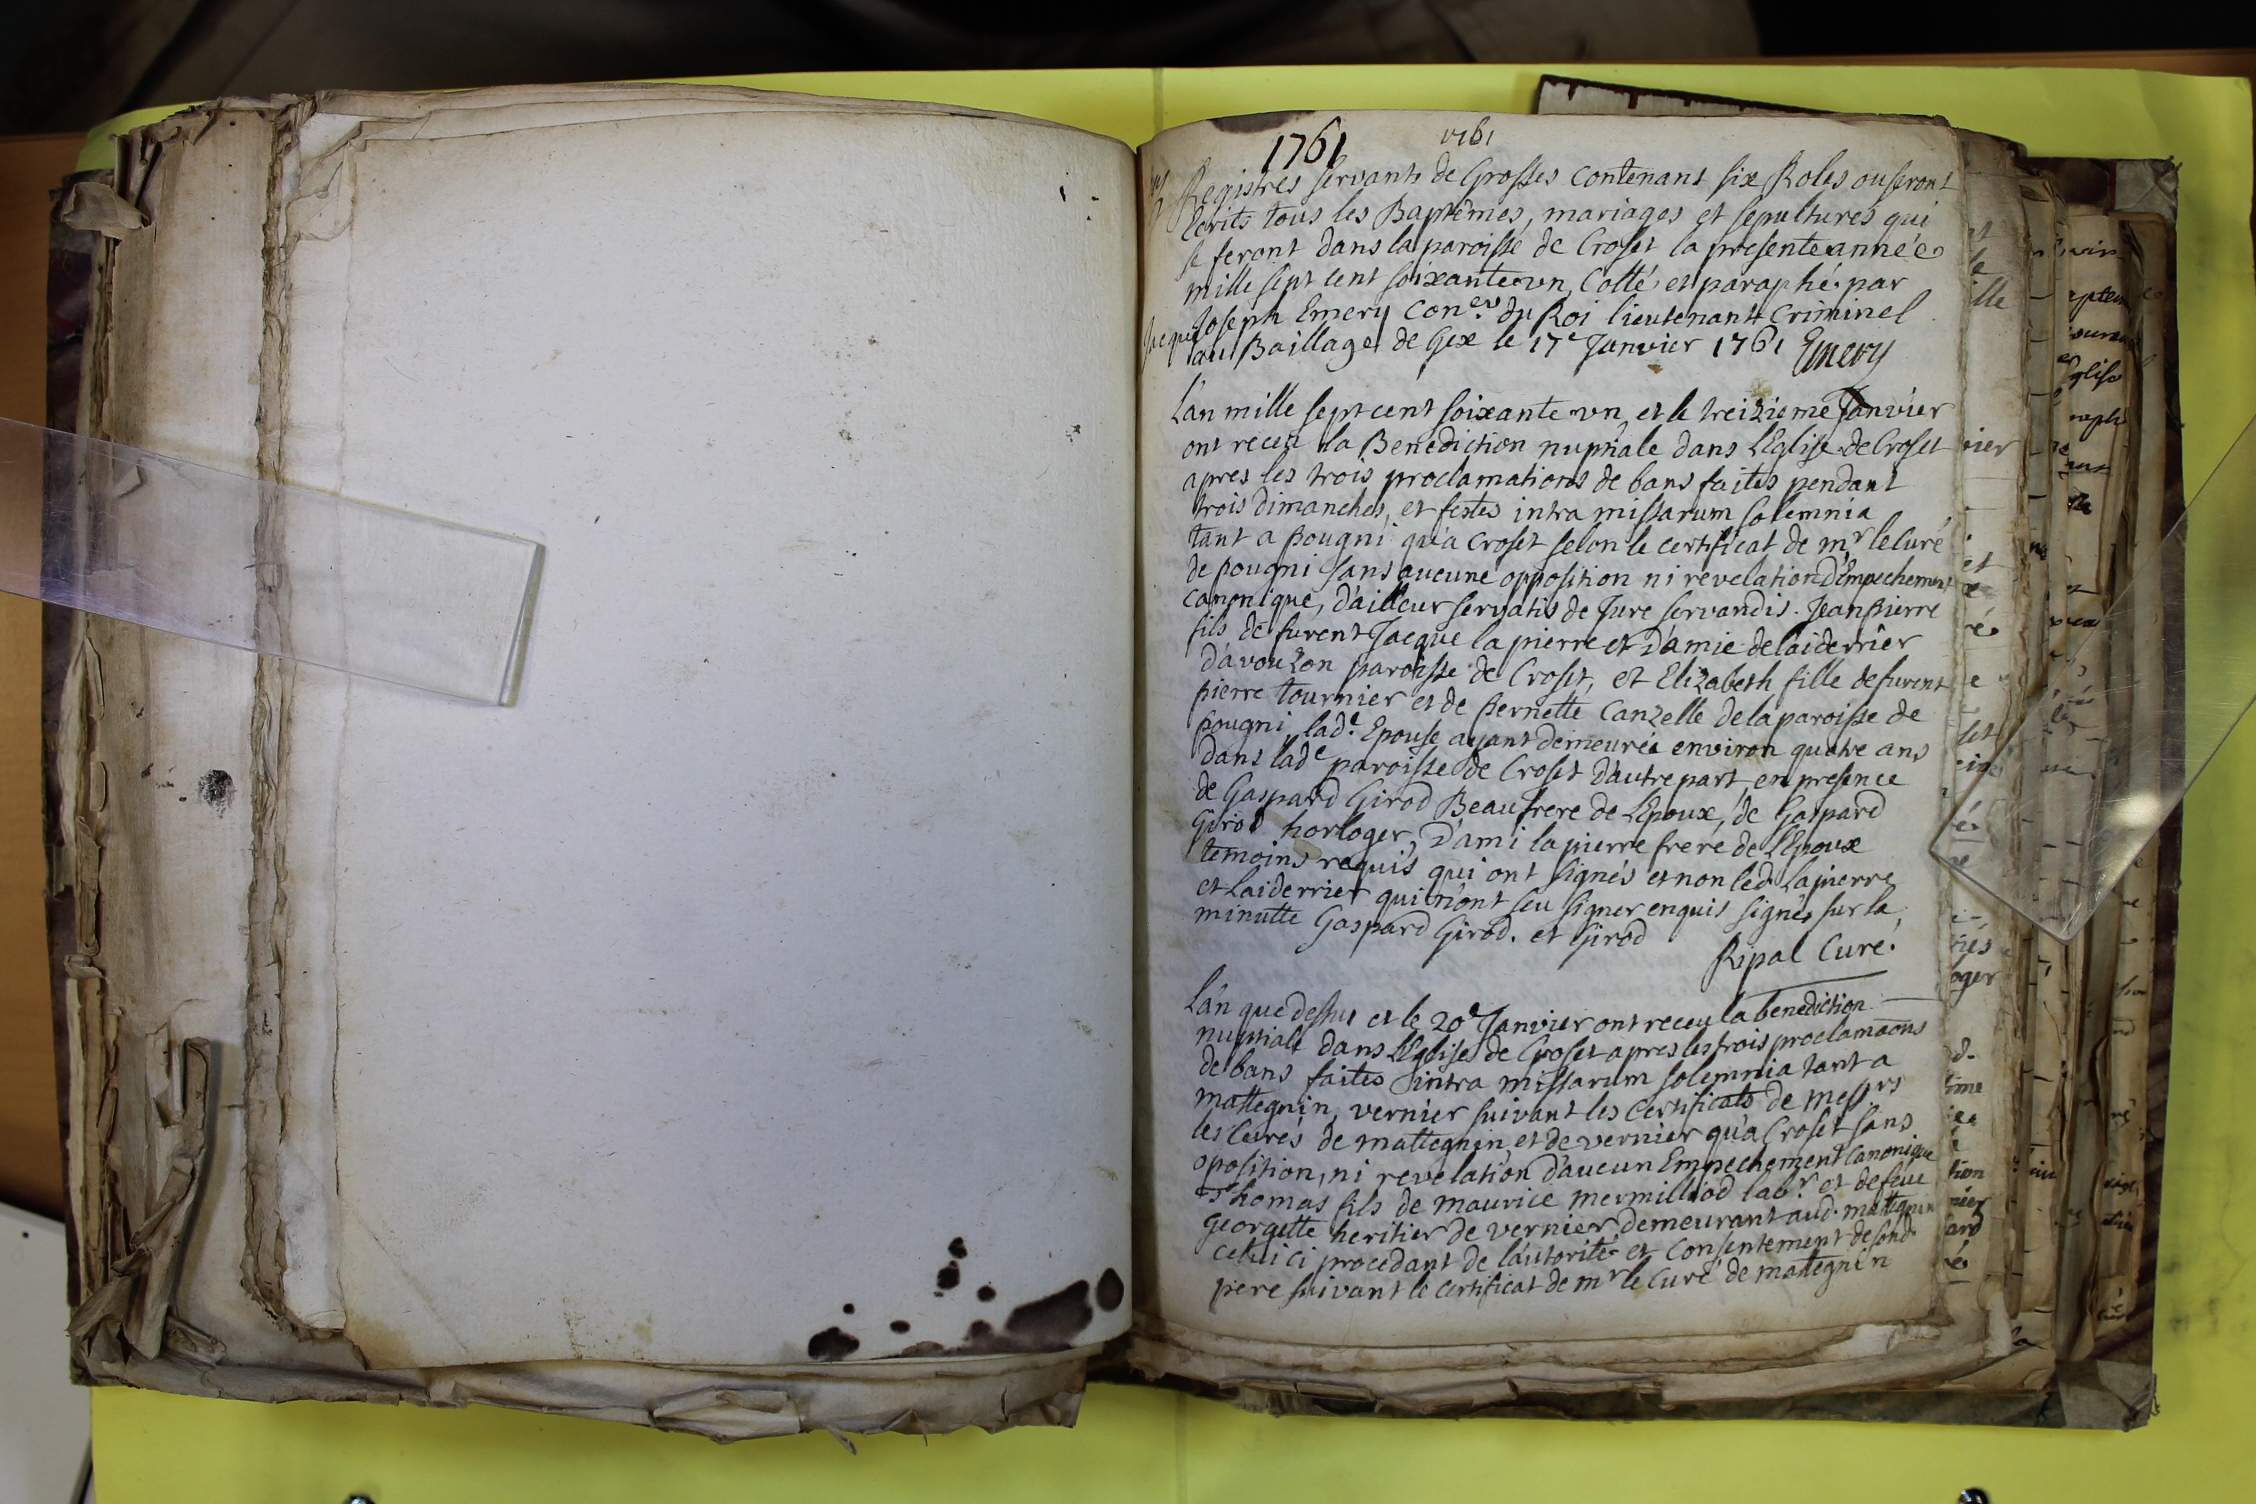 1761 1761
Registres servants de Grosses contenans six Roles ou seront
Ecrits tous les Baptêmes, mariages et sepultures qui
se feront dans la paroisse de Croset la presente année
mille sept cent soixante un, Cotté et paraphé par
Joseph Emery Con.er du Roi lieutenant Criminel
au Baillage de Gex le 17e Janvier 1761 Emery
L'an mille sept cent soixante un et le treizieme Janvier
ont receu la Benediction nuptiale dans L'Eglise de Croset
apres les trois proclamations de bans faites pendant
trois dimanches, et festes intra missarum solemnia
tant a pougni qu'a Croset selon le certificat de mr le Curé
de pougni sans aucune opposition ni revelation d'Empechement
canonique, d'ailleur servatis de Jure servandis. Jean pierre
fils de furent Jacque la pierre et d'amie de laiderrier
d'avouzon paroisse de Croset, et Elizabeth fille de furent
pierre tournier et de pernette Canzelle de la paroisse de
pougni, lad.e Epouse ayant demeurée environ quatre ans
dans lad.e paroisse de Croset d'autre part, en presence
de Gaspard Girod Beaufrere de L'Epoux, de Gaspard
Girod horloger, D'ami la pierre frere de L'Epoux
temoins requis qui ont signés et non led. Lapierre
et Laiderrier qui n'ont seu signer enquis signés sur la
minutte Gaspard Girod. et Girod
Ripal Curé.
L'an que dessus et le 20e Janvier ont receu la benediction
nuptiale dans L'Eglise de Croset apres les trois proclamaõns
de bans faites intra missarum solemnia tant a
mattegnin, vernier suivant les Certificats de messrs
les Curés de mattegnin, et de vernier qu'a Croset sans
oposition, ni revelation d'aucun Empechement Canonique
Thomas fils de maurice mermilliod lab.r et de feue
Georgette heritier de vernier demeurant aud. mattegnin
celui ci procedant de l'autorité et Consentement de sond.
pere suivant le certificat de mr le Curé de mattegnin